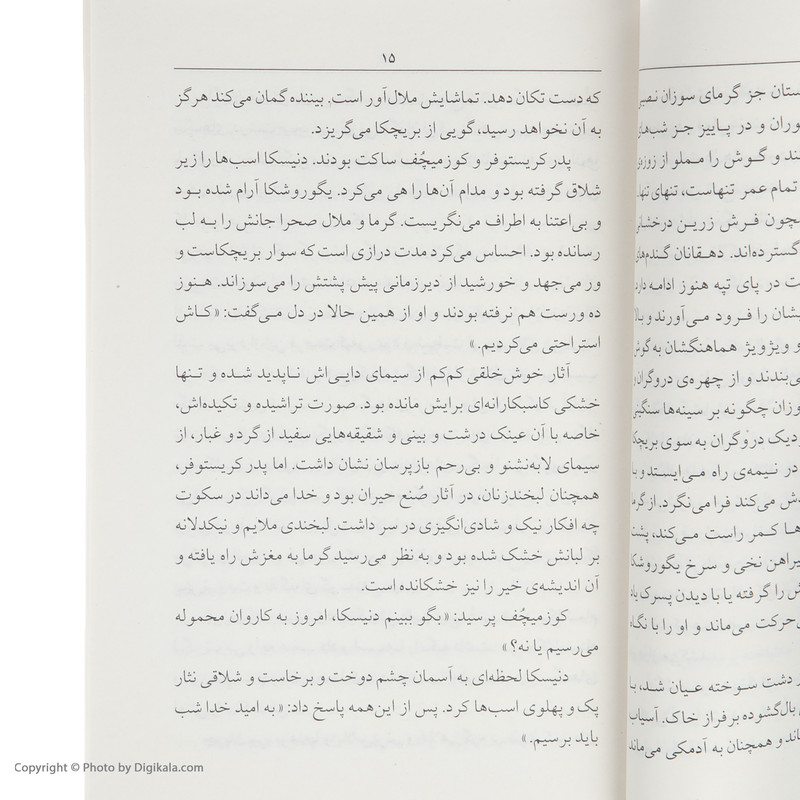 ۱۵
که دست تکان دهد. تماشایش ملال‌آور است, بیننده گمان می‌کند هرگز
به آن نخواهد رسید، گویی از بریچکا می‌گریزد.
پدر کریستوفر و کوزمیچُف ساکت بودند. دنیسکا اسب‌ها را زیر
شلاق گرفته بود و مدام آن‌ها را هی می‌کرد. یگوروشکا آرام شده بود
و بی‌اعتنا به اطراف می‌نگریست. گرما و ملال صحرا جانش را به لب
رسانده بود. احساس می‌کرد مدت درازی است که سوار بریچکاست و
ور می‌جهد و خورشید از دیرزمانی پیش پشتش را می‌سوزاند. هنوز
ده ورست هم نرفته بودند و او از همین حالا در دل می‌گفت: «کاش
استراحتی می‌کردیم.»
آثار خوش‌خلقی کم‌کم از سیمای دایی‌اش ناپدید شده و تنها
خشکی کاسبکارانه‌ای برایش مانده بود. صورت تراشیده و تکیده‌اش،
خاصه با آن عینک درشت و بینی و شقیقه‌هایی سفید از گرد و غبار، از
سیمای لابه‌نشنو و بی‌رحم بازپرسان نشان داشت. اما پدر کریستوفر،
همچنان لبخندزنان، در آثار صُنع حیران بود و خدا می‌داند در سکوت
چه افکار نیک و شادی‌انگیزی در سر داشت. لبخندی ملایم و نیکدلانه
بر لبانش خشک شده بود و به نظر می‌رسید گرما به مغزش راه یافته و
آن اندیشه‌ی خیر را نیز خشکانده است.
کوزمیچُف پرسید: «بگو ببینم دنیسکا، امروز به کاروان محموله
می‌رسیم یا نه؟»
دنیسکا لحظه‌ای به آسمان چشم دوخت و برخاست و شلاقی نثار
پک و پهلوی اسب‌ها کرد. پس از این‌همه پاسخ داد: «به امید خدا شب
باید برسیم.»
ستان جز گرمای سوزان
وران و در پاییز جز
ند و گوش را مملو از
تمام عمر تنهاست، تنهای
چون فرش زرین
گسترده‌اند. دهقانان
ت در پای تپه هنوز ادامه
شان را فرود می‌آورند و
و ویژویژ هماهنگشان به
ی‌بندند و از چهره‌ی
وزان چگونه بر سینه‌ها
دیک دروگران به سوی
در نیمه‌ی راه می‌ایستد و
ش می‌کند فرا می‌نگرد. از
ها کمر راست می‌کند،
یراهن نخی و سرخ
ش را گرفته یا با دیدن پسرک
حرکت می‌ماند و او را با
دشت سوخته عیان شد،
بال‌گشوده بر فراز خاک.
ند و همچنان به آدمکی
Copyright © Photo by Digikala.com